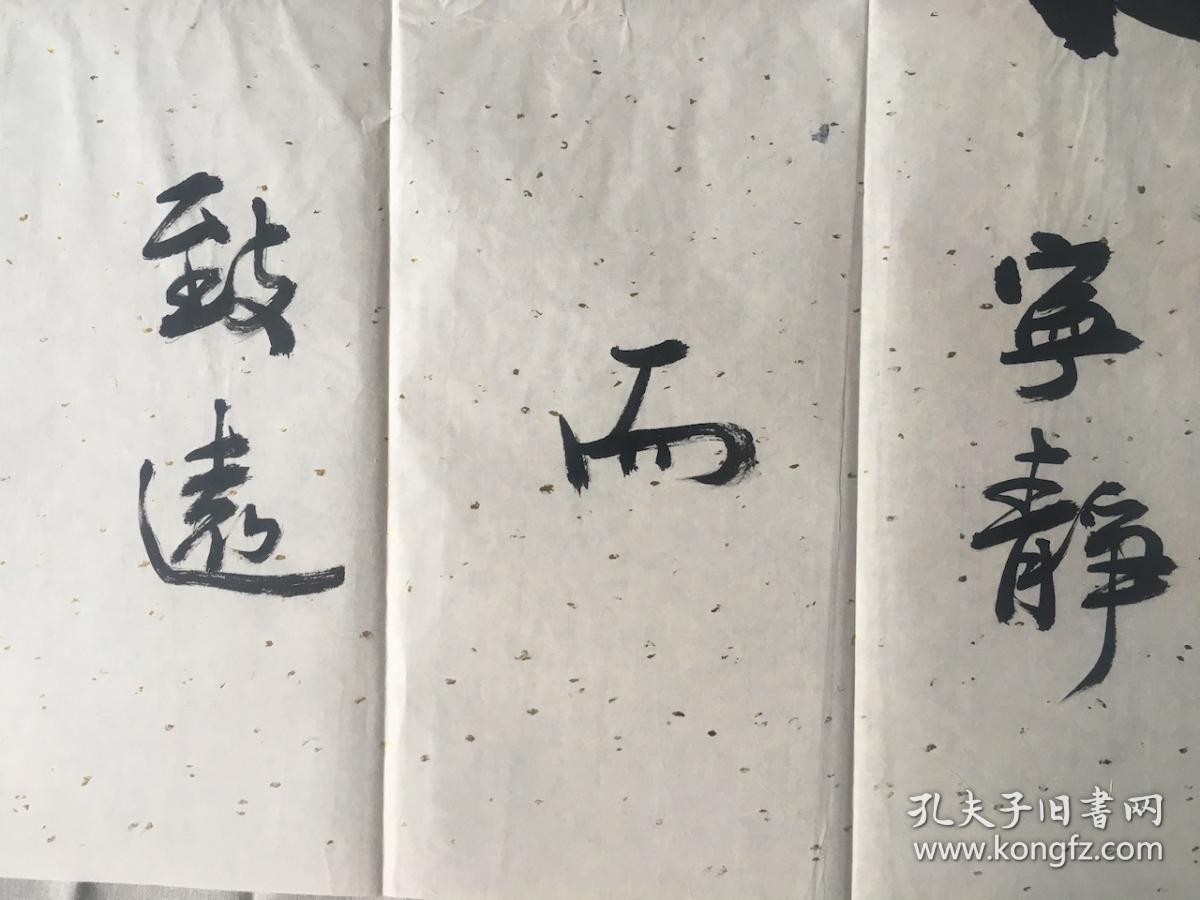 寧靜
而
致遠
孔夫子旧書网
www.kongfz.com